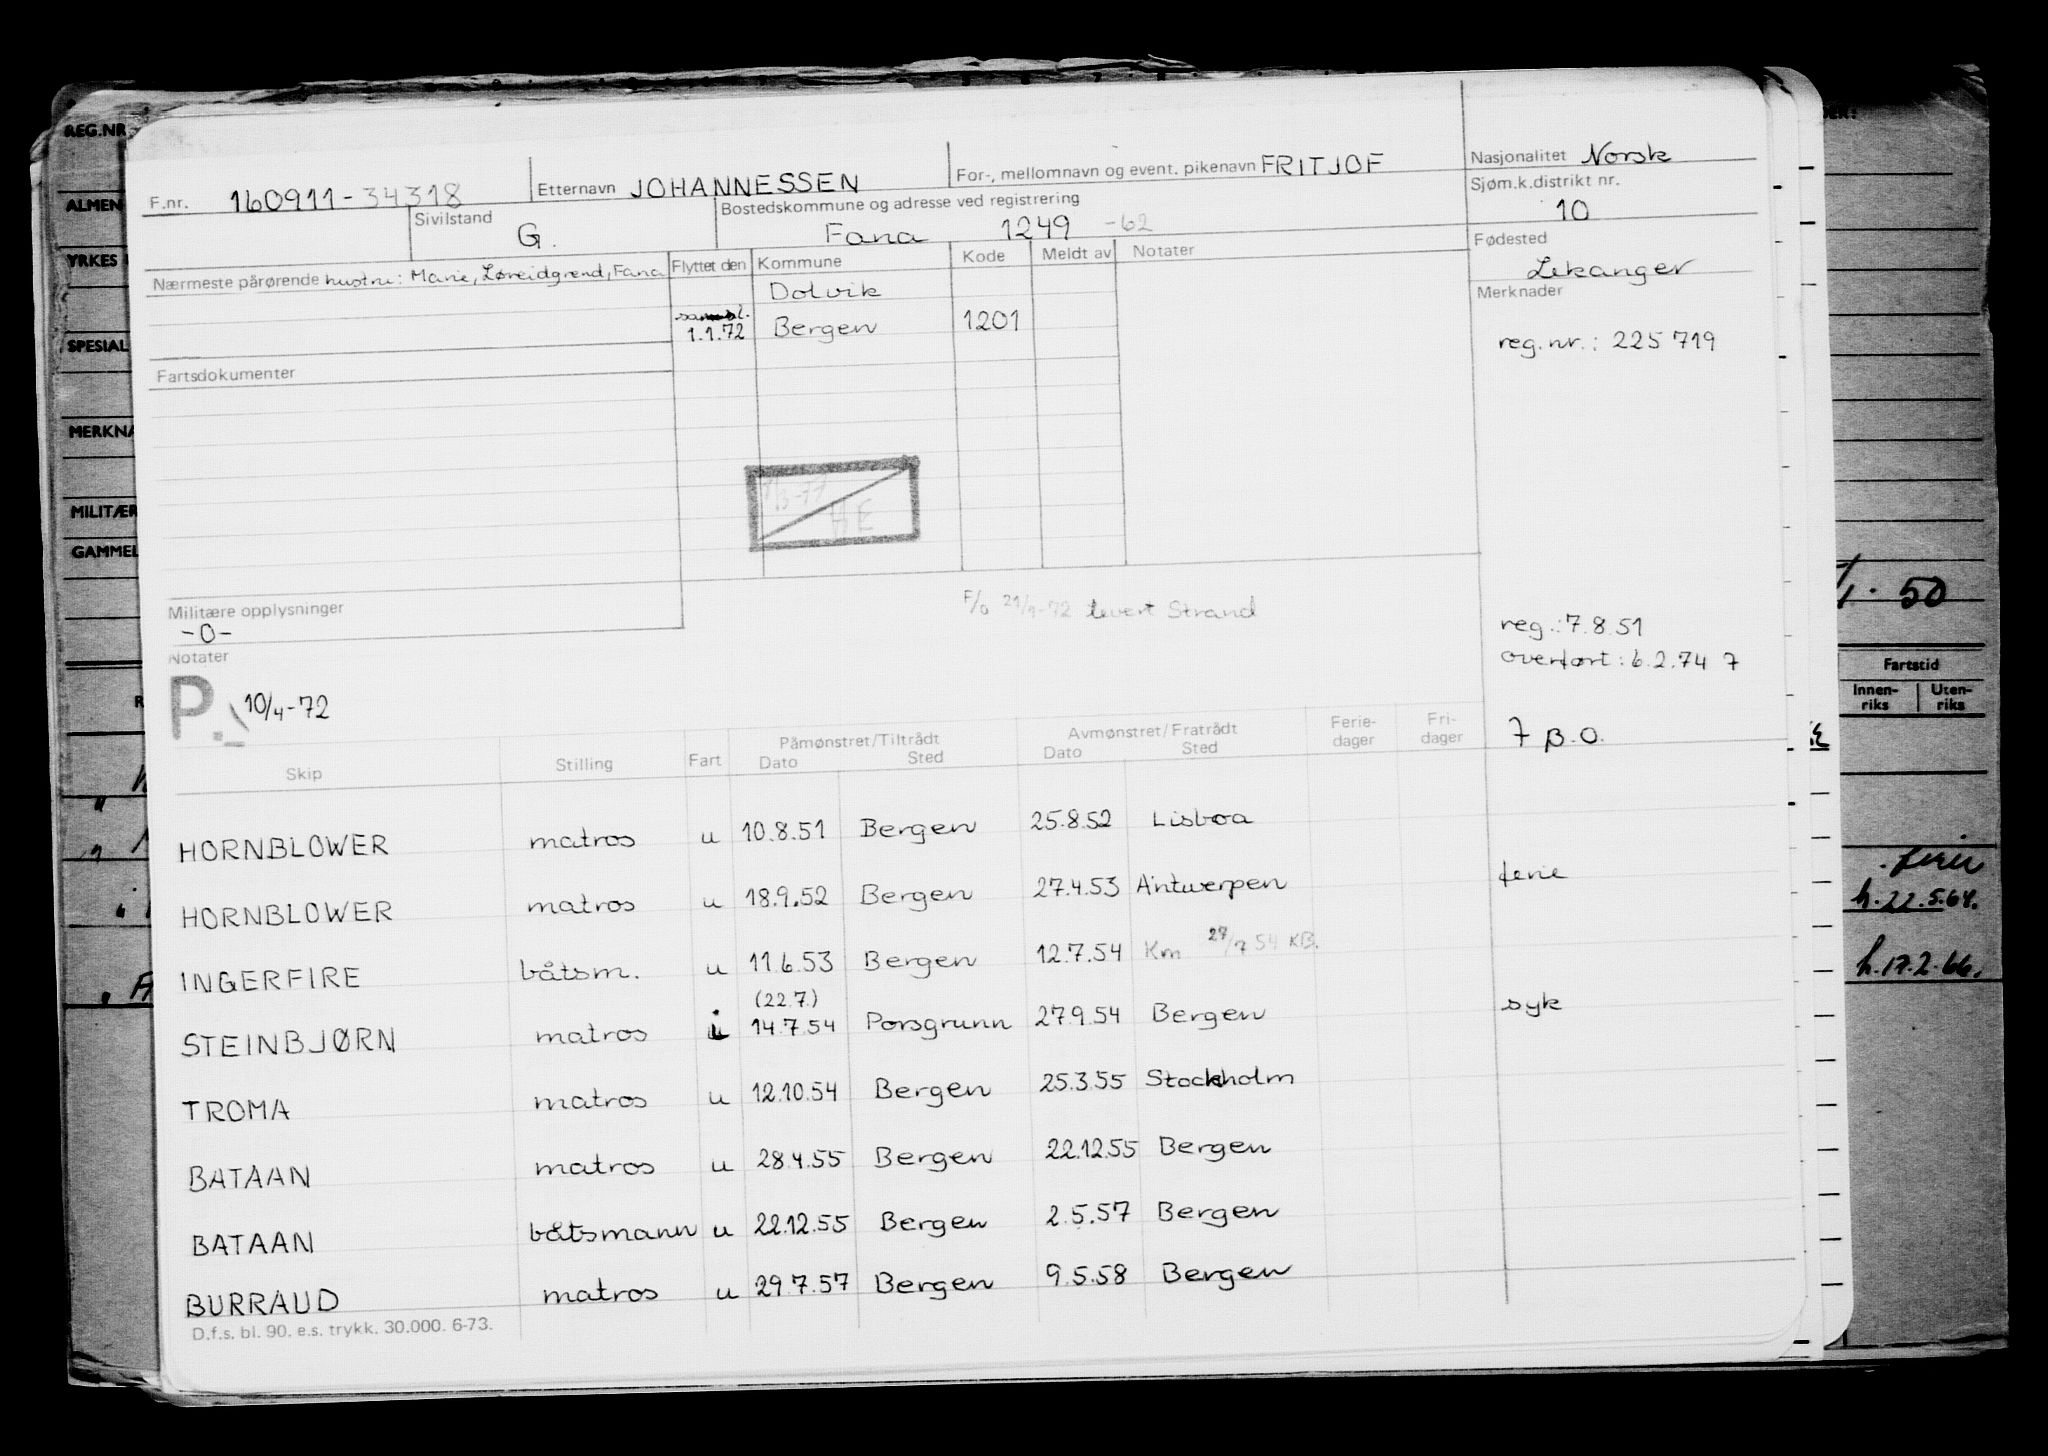 REG.NR
ALMEN
YRKES
SPESIAL
MERKNA
MILITÆR
GAMMEL
F.nr. 160911-34318
Etternavn JOHANNESSEN
For-, mellomnavn og event. pikenavn FRITJOF
Nasjonalitet Norsk
Sjøm.k.distrikt nr. 10
Sivilstand G.
Bostedskommune og adresse ved registrering
Fana 1249 -62
Fødested
Lekanger
Nærmeste pårørende hustru: Marie, Løreidgrend, Fana
Flyttet den Kommune Kode Meldt av Notater
Dolvik
1.1.72 Bergen 1201
Merknader
reg.nr.: 225719
Fartsdokumenter
HE
F/o 21/1-72 levert Strand
Militære opplysninger
-0-
reg.: 7.8.51
overført: 6.2.74 7
Notater
P. 10/4-72
7 B.O.
Skip Stilling Fart Påmønstret/Tiltrådt Dato Sted Avmønstret/Fratrådt Dato Sted Ferie-dager Fri-dager
HORNBLOWER matros u 10.8.51 Bergen 25.8.52 Lisboa
HORNBLOWER matros u 18.9.52 Bergen 27.4.53 Antwerpen ferie
INGERFIRE båtsm. u 11.6.53 Bergen 12.7.54 Km 27/7 54 KB.
(22.7.)
STEINBJØRN matros i 14.7.54 Porsgrunn 27.9.54 Bergen syk
TROMA matros u 12.10.54 Bergen 25.3.55 Stockholm
BATAAN matros u 28.4.55 Bergen 22.12.55 Bergen
BATAAN båtsmann u 22.12.55 Bergen 2.5.57 Bergen
BURRAUD matros u 29.7.57 Bergen 9.5.58 Bergen
D.f.s. bl. 90. e.s. trykk. 30.000. 6-73.
50
Fartstid
Innen-riks Uten-riks
ferie
h. 22.5.64.
h. 17.2.66.